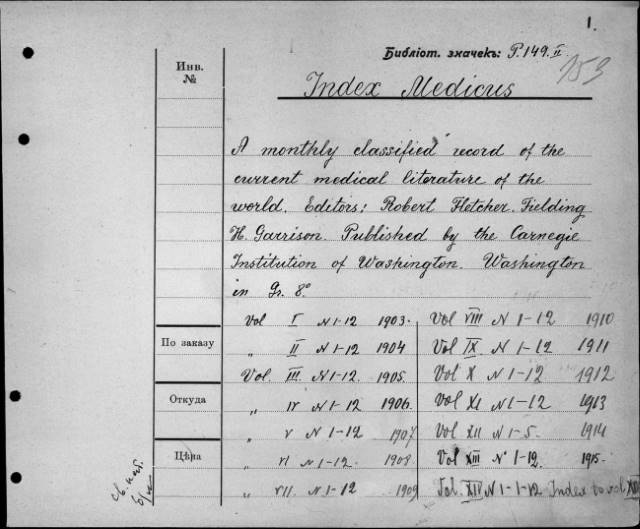 1.
Библіот. значекъ: P.149.II
153
Инв. №
Index Medicus
A monthly classified record of the
current medical literature of the
world. Editors: Robert Fletcher. Fielding
H. Garrison. Published by the Carnegie
Institution of Washington. Washington
in Gr. 8°
Vol I N 1-12 1903. Vol VIII N 1-12 1910
По заказу
„ II N 1-12 1904 Vol IX. N 1-12 1911
Vol. III. N 1-12. 1905. Vol X N 1-12 1912
Откуда
„ IV N 1-12 1906. Vol XI N 1-12 1913
„ V N 1-12 1907 Vol XII N 1-5. 1914
Цѣна
„ VI N 1-12. 1908 Vol XIII N 1-12. 1915.
„ VII. N 1-12 1909 Vol. XIV N 1-1-12 Index to vol